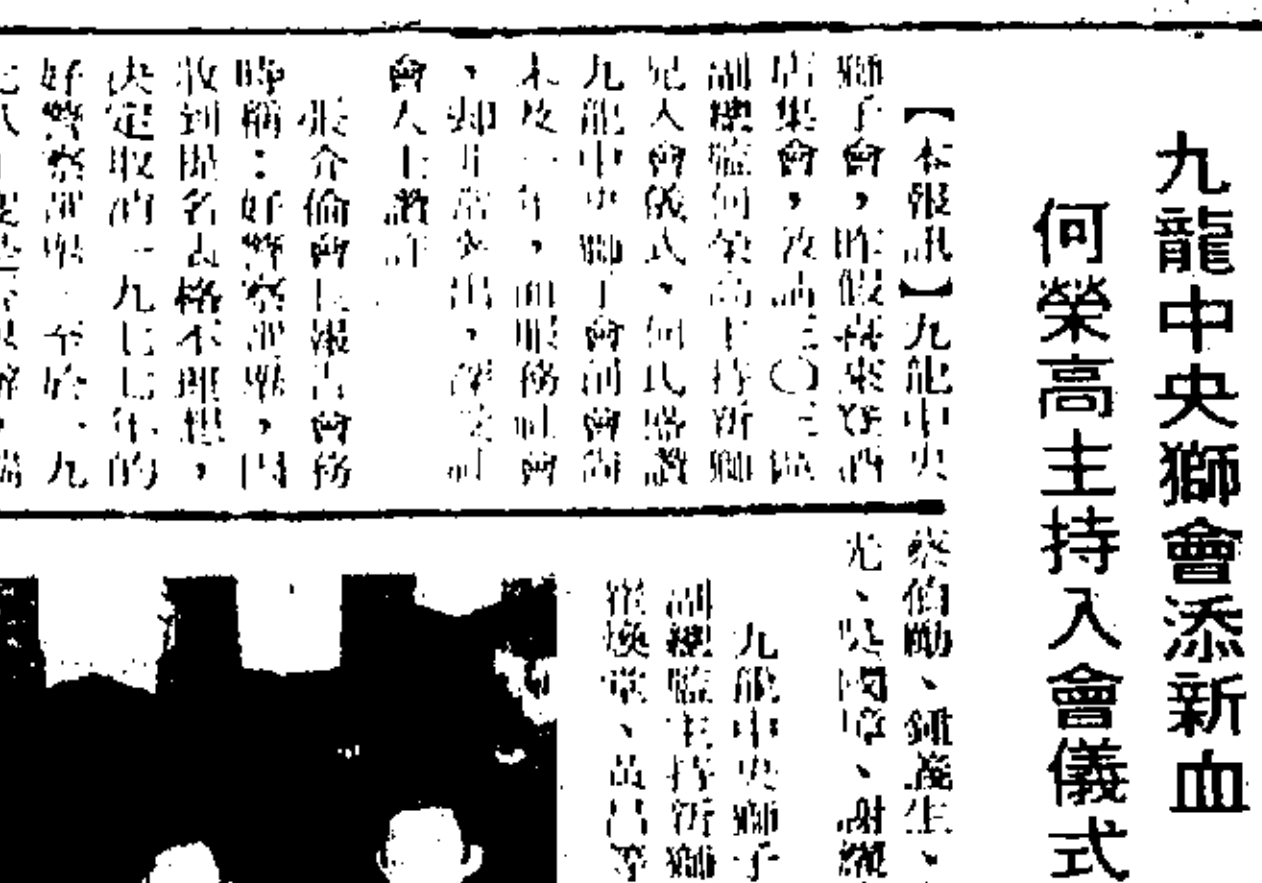 九龍中央獅會添新血
何榮高主持入會儀式
【本報訊】九龍中央
獅子會，昨假喜來登酒
店集會，及請三〇三區
副總監何榮高主持新獅
兄入會儀式、何氏盛讚
九龍中央獅子會創會尚
未及一年，而服務社會
、却非常突出，深受社
會人士讚許
張介倫會長報告會務
時稱：好警察選舉，因
收到提名表格不理想，
決定取消一九七七年的
好警察選舉．至於、九
蔡伯勵、鍾義生、
尤、吳國璋、謝
九龍中央獅子
副總監主持新獅
崔煥章、黃昌等